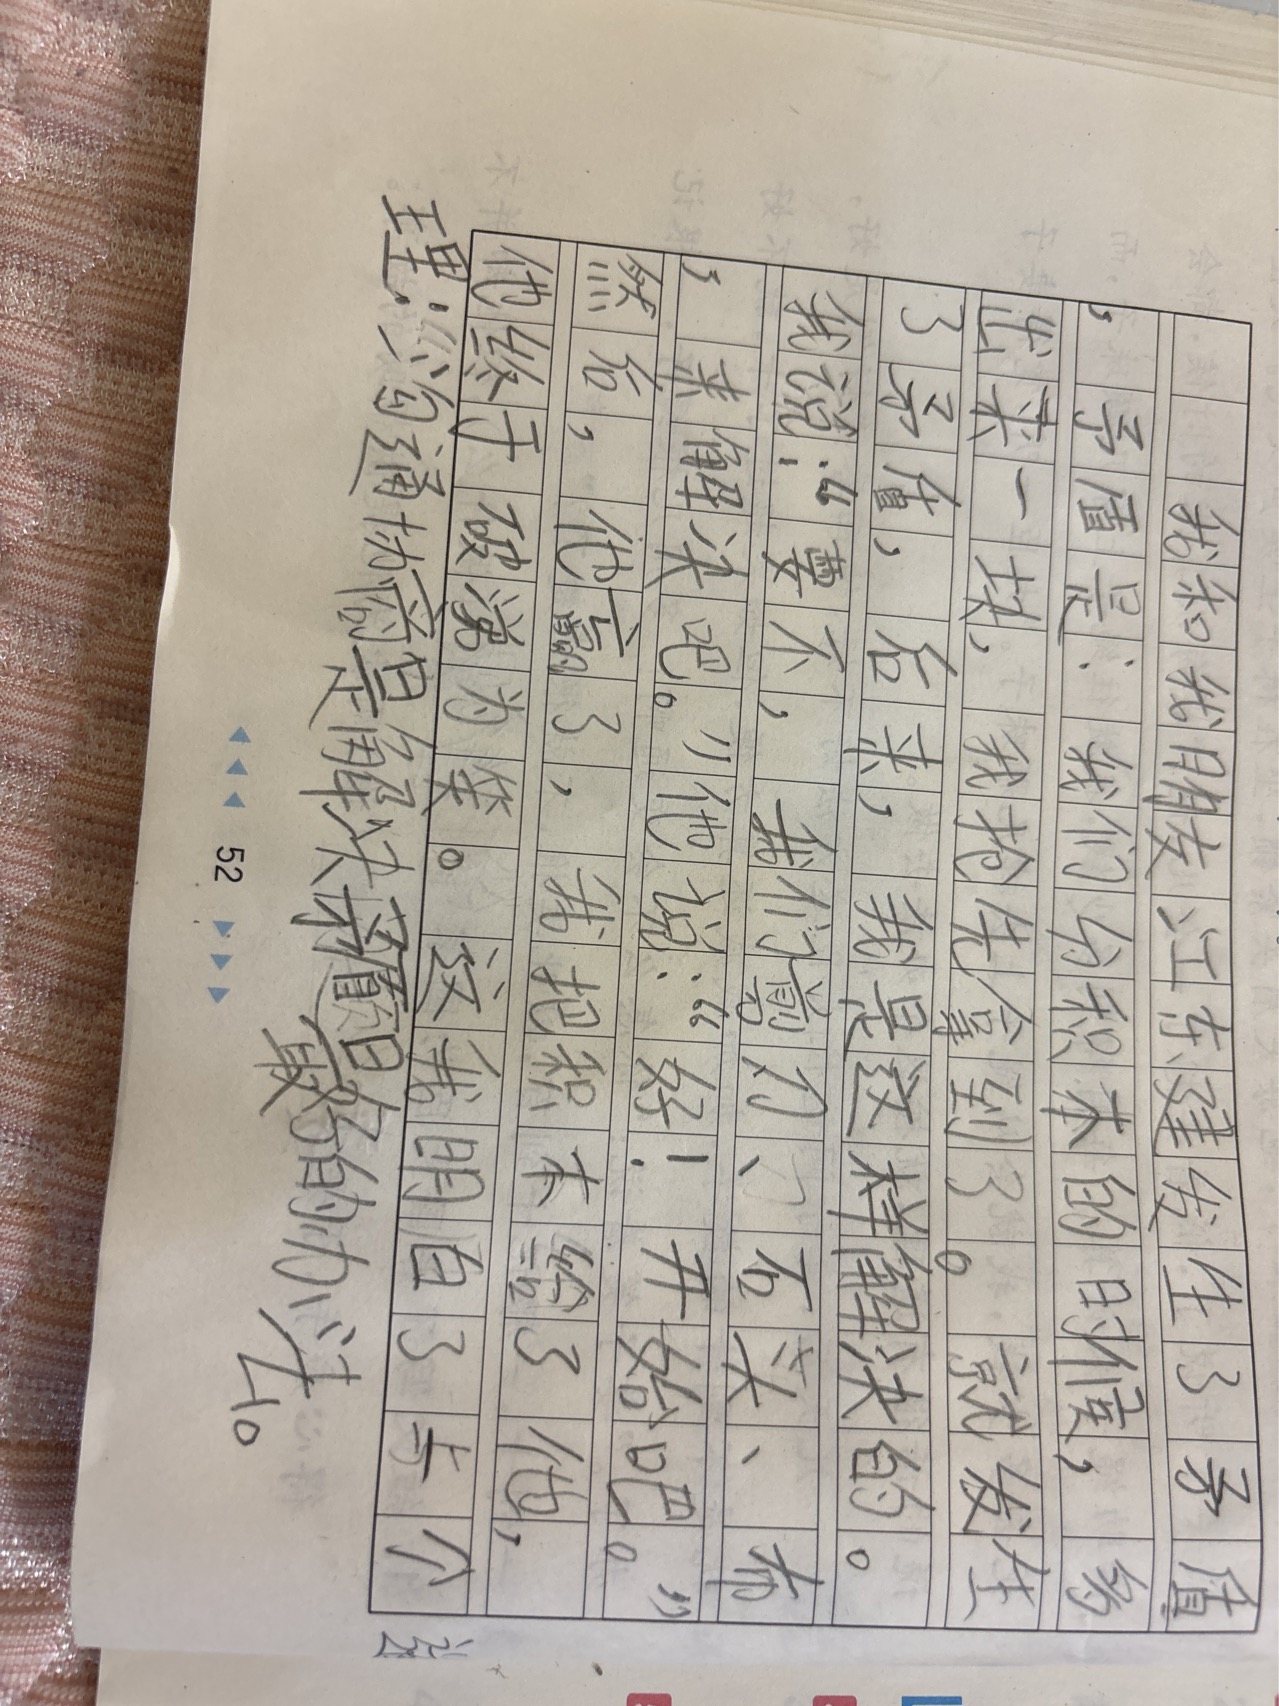 我和我朋友江东建发生了矛盾
，矛值是：我们分积木的时候，多
出来一块，我抢先拿到了。就发生
了矛值，后来，我是这样解决的。
我说：“要不，我们剪刀、石头、布
，来解决吧。”他说：“好！开始吧。”
然后，他赢了，我把积木给了他，
他终于破涕为笑。这我明白了一个
理：沟通协商是解决矛盾最好的办法。
52